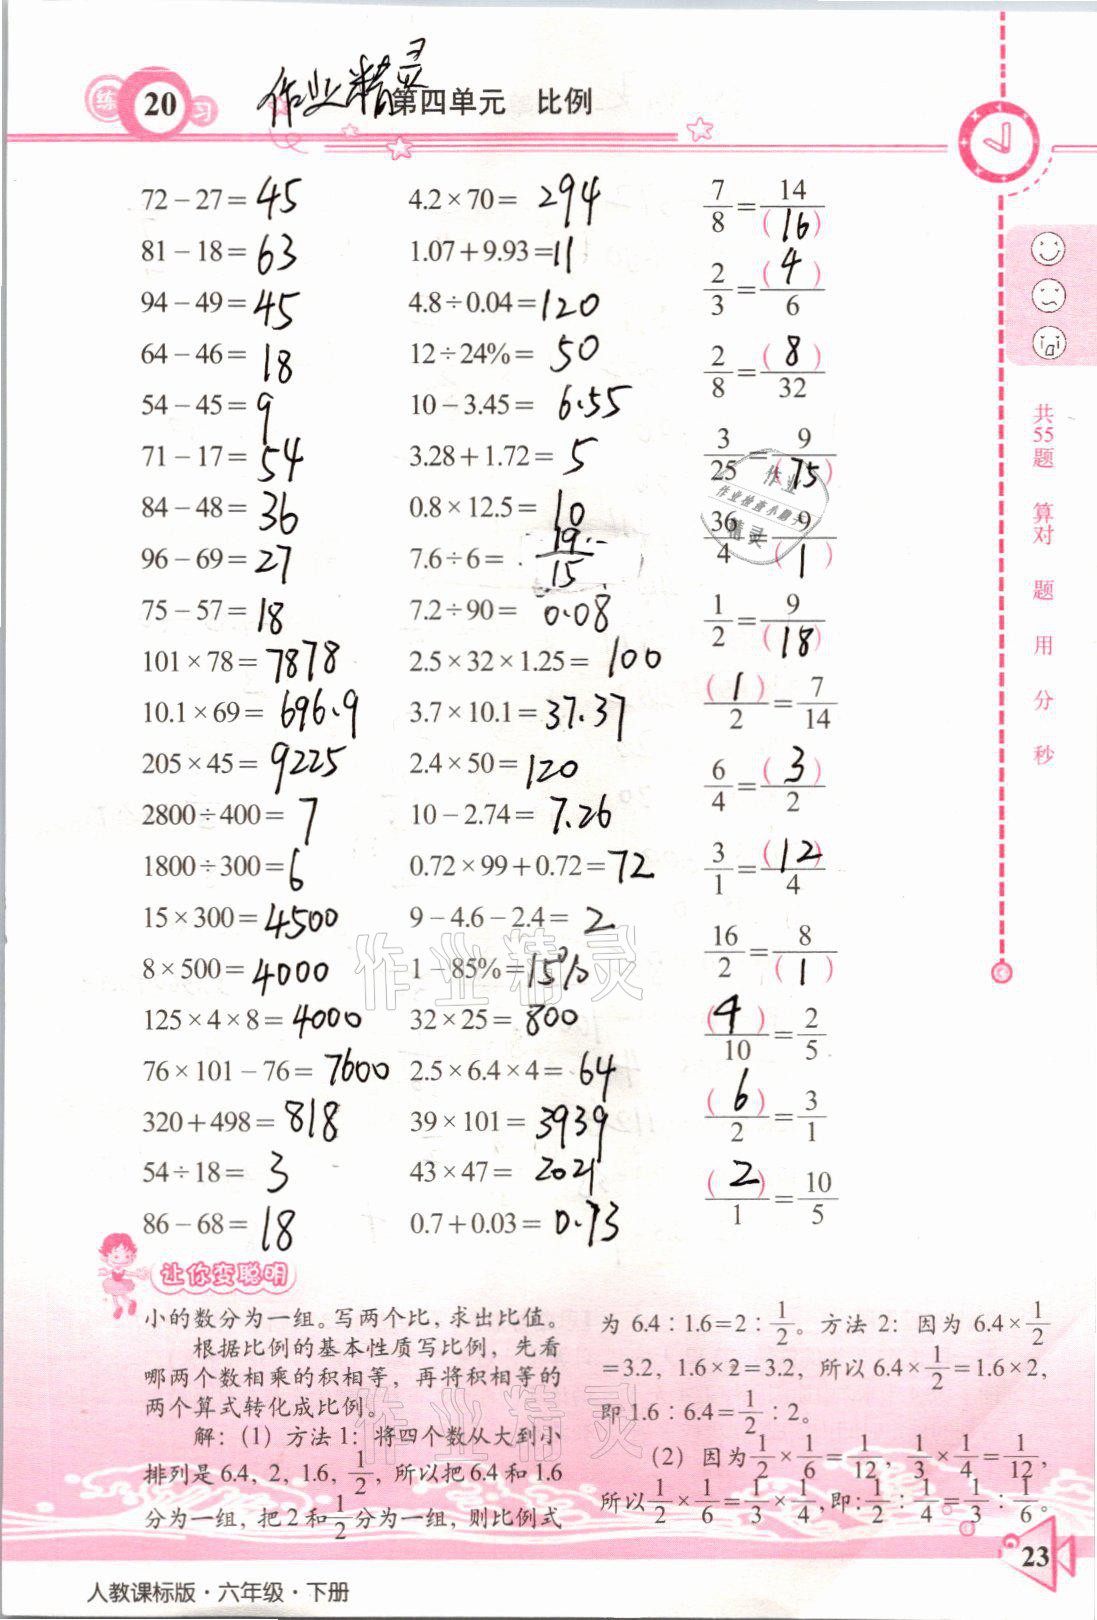 练 20 习
作业精灵
第四单元 比例
72－27＝45
81－18＝63
94－49＝45
64－46＝18
54－45＝9
71－17＝54
84－48＝36
96－69＝27
75－57＝18
101×78＝7878
10.1×69＝696.9
205×45＝9225
2800÷400＝7
1800÷300＝6
15×300＝4500
8×500＝4000
125×4×8＝4000
76×101－76＝7600
320＋498＝818
54÷18＝3
86－68＝18
4.2×70＝294
1.07＋9.93＝11
4.8÷0.04＝120
12÷24%＝50
10－3.45＝6.55
3.28＋1.72＝5
0.8×12.5＝10
7.6÷6＝19/15
7.2÷90＝0.08
2.5×32×1.25＝100
3.7×10.1＝37.37
2.4×50＝120
10－2.74＝7.26
0.72×99＋0.72＝72
9－4.6－2.4＝2
1－85%＝15%
32×25＝800
2.5×6.4×4＝64
39×101＝3939
43×47＝2021
0.7＋0.03＝0.73
7/8＝14/(16)
2/3＝(4)/6
2/8＝(8)/32
3/25＝9/(75)
36/4＝9/(1)
1/2＝9/(18)
(1)/2＝7/14
6/4＝(3)/2
3/1＝(12)/4
16/2＝8/(1)
(4)/10＝2/5
(6)/2＝3/1
(2)/1＝10/5
作业
作业检查小助手
精灵
共55题 算对 题 用 分 秒
作业精灵
让你变聪明
小的数分为一组。写两个比，求出比值。
根据比例的基本性质写比例，先看
哪两个数相乘的积相等，再将积相等的
两个算式转化成比例。
解：(1) 方法1：将四个数从大到小
排列是6.4，2，1.6，1/2，所以把6.4和1.6
分为一组，把2和1/2分为一组，则比例式
为6.4∶1.6＝2∶1/2。方法2：因为6.4×1/2
＝3.2，1.6×2＝3.2，所以6.4×1/2＝1.6×2，
即1.6∶6.4＝1/2∶2。
(2) 因为1/2×1/6＝1/12，1/3×1/4＝1/12，
所以1/2×1/6＝1/3×1/4，即：1/2∶1/4＝1/3∶1/6。
作业精灵
23
人教课标版·六年级·下册